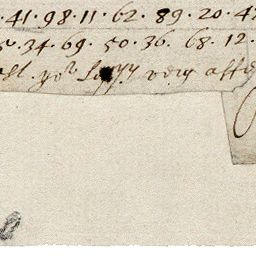 · 41 · 98 · 11 · 62 · 89 · 20 · 47
· 34 · 69 · 50 · 36 · 68 · 12 ·
yor very affe